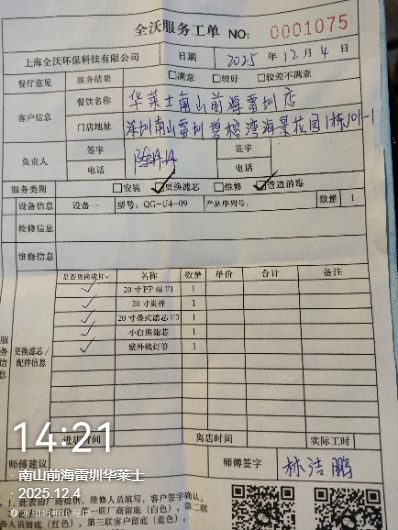 全沃服务工单 NO: 0001075
上海全沃环保科技有限公司 日期 2025年12月4日
餐厅意见 服务结果 □满意 □较好 □较差不满意
客户信息 餐饮名称 华莱士南山前海雷圳店
门店地址 深圳南山雷圳碧榕湾海景花园1栋101-1
负责人 签字 签字
电话 电话
服务类别 □安装 ☑更换滤芯 □维修 ☑管道消毒
设备信息 设备一 型号: QG-U4-09 产品序列号: 数量 1
检修信息
维修信息
服务信息 更换滤芯/配件信息 是否更换请打√ 名称 数量 单价 合计 备注
✓ 20寸PP棉 1
✓ 20寸炭棒 1
✓ 20寸叠式滤芯V3 1
✓ 小白熊滤芯 1
✓ 紫外线灯管 1
进店时间 离店时间 实际工时
师傅建议 师傅签字 林洁鹏
14:21
南山前海雷圳华莱士
2025.12.4